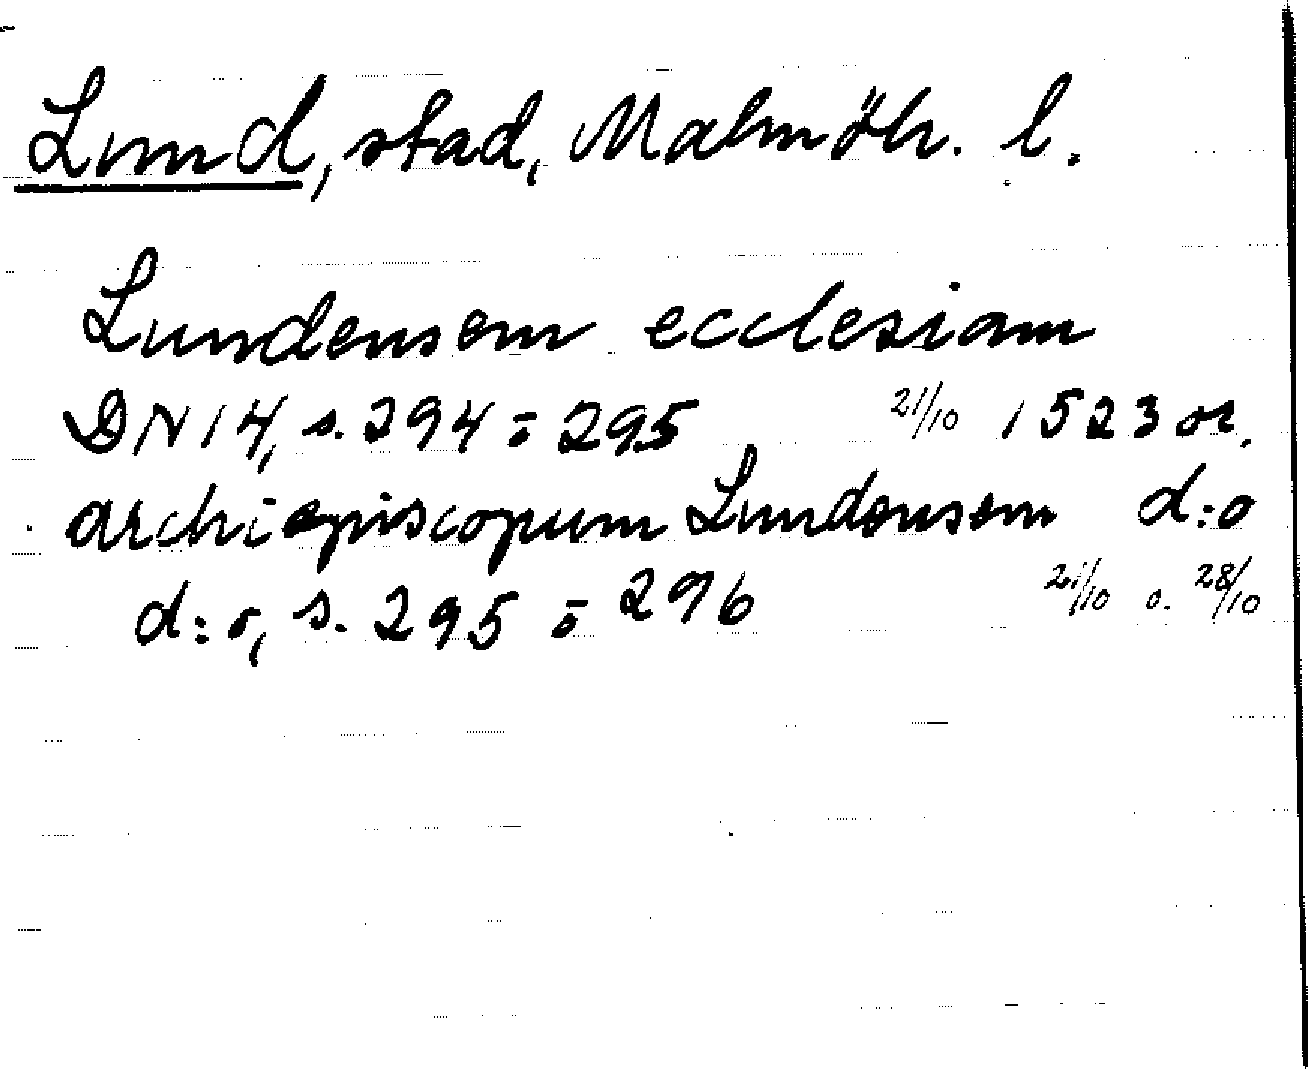 Lund, stad, Malmöh. l.
Lundensem ecclesiam
DN 14, s. 294-295 21/10 1523 or.
archiepiscopum Lundensem d:o
d:o, s. 295-296 21/10 o. 28/10